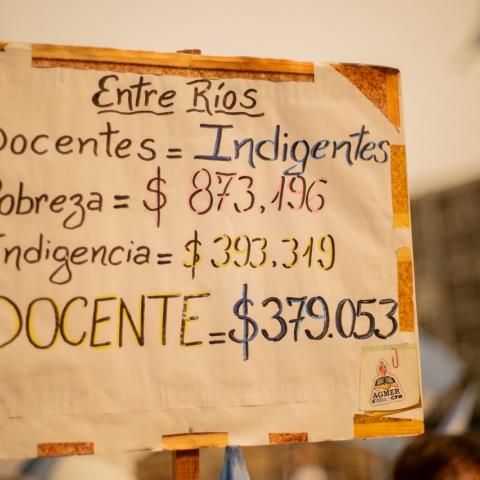 Entre Ríos
Docentes = Indigentes
Pobreza = $ 873,196
Indigencia = $ 393.319
DOCENTE = $379.053
AGMER
CTA